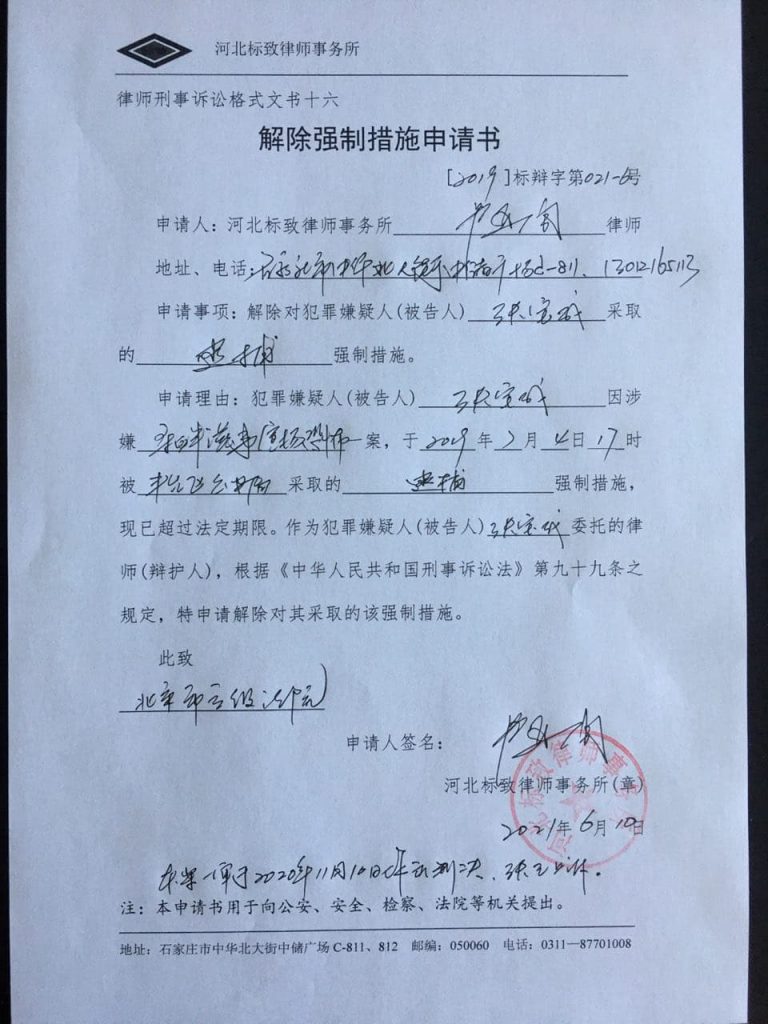 河北标致律师事务所
律师刑事诉讼格式文书十六
解除强制措施申请书
[2019]标辩字第021-6号
申请人：河北标致律师事务所 律师
地址、电话：
申请事项：解除对犯罪嫌疑人(被告人) 张宝成 采取
的 逮捕 强制措施。
申请理由：犯罪嫌疑人(被告人) 张宝成 因涉
嫌 一案，于 2019 年 月 4 日 17 时
被 丰台区公安分局 采取的 逮捕 强制措施，
现已超过法定期限。作为犯罪嫌疑人(被告人) 张宝成 委托的律
师(辩护人)，根据《中华人民共和国刑事诉讼法》第九十九条之
规定，特申请解除对其采取的该强制措施。
此致
北京市高级法院
申请人签名：
河北标致律师事务所(章)
2021年 6月 10日
本案一审于2020年11月10日 判决，张 上诉。
注：本申请书用于向公安、安全、检察、法院等机关提出。
地址：石家庄市中华北大街中储广场 C-811、812 邮编：050060 电话：0311—87701008